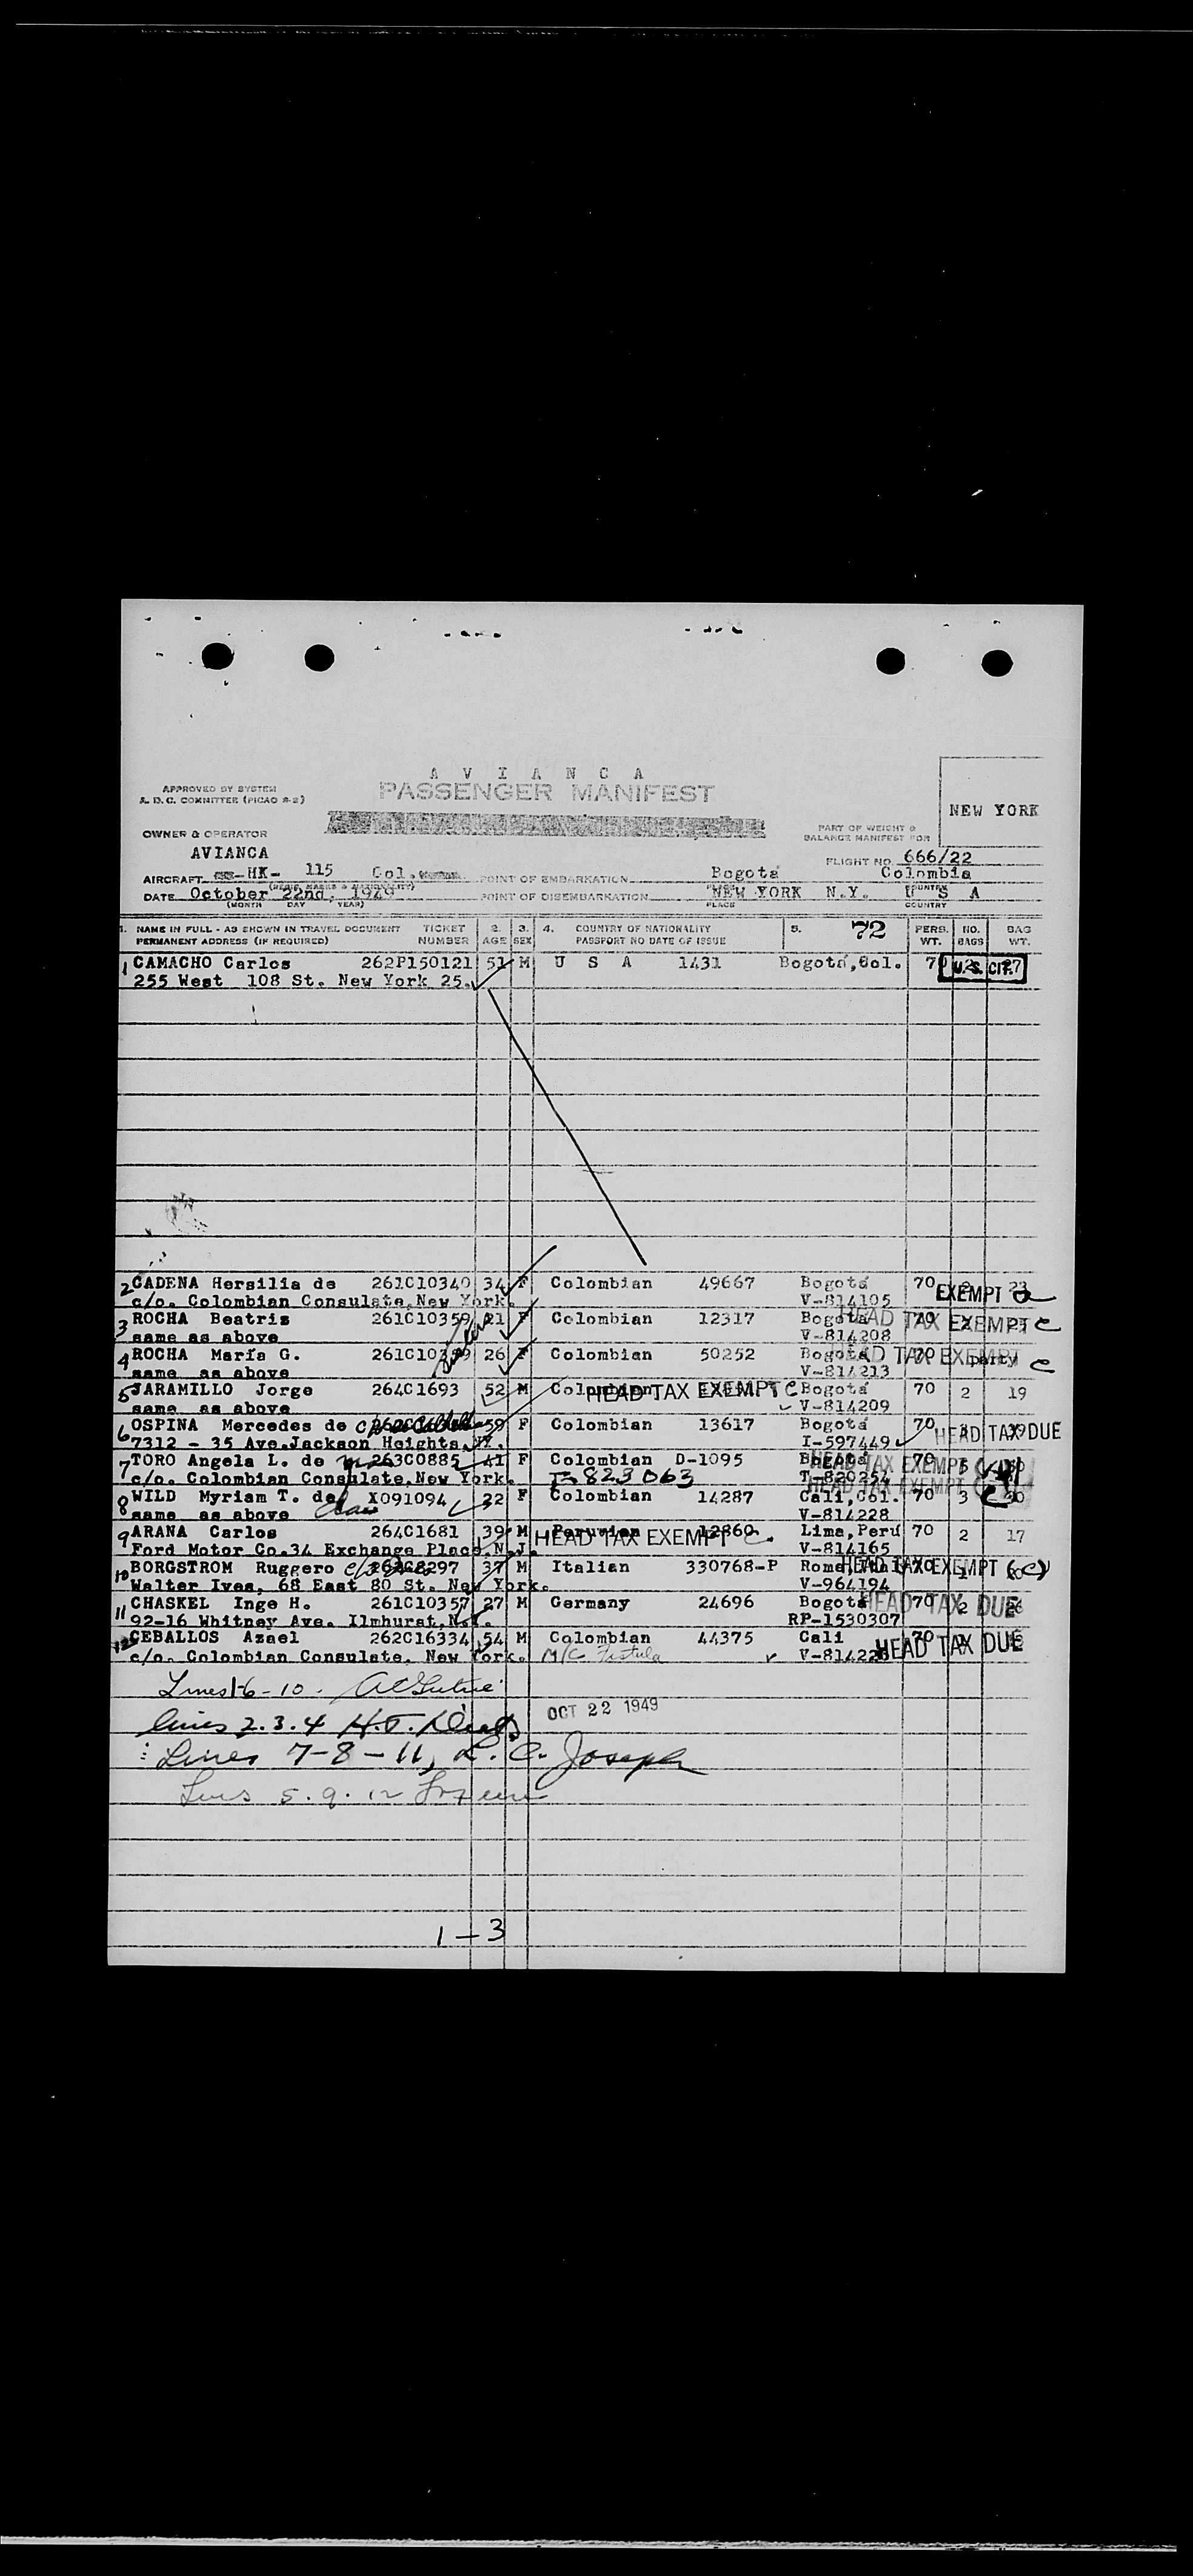 A V I A N C A
PASSENGER MANIFEST
APPROVED BY SYSTEM
A. D. C. COMMITTEE (PICAO R-2)
NEW YORK
OWNER & OPERATOR
PART OF WEIGHT &
BALANCE MANIFEST FOR
AVIANCA
FLIGHT NO. 666/22
AIRCRAFT HK- 115 Col. POINT OF EMBARKATION Bogotá Colombia
DATE October 22nd, 1949 POINT OF DISEMBARKATION NEW YORK N.Y. U S A
(MONTH DAY YEAR) PLACE COUNTRY
1. NAME IN FULL - AS SHOWN IN TRAVEL DOCUMENT TICKET 2. 3. 4. COUNTRY OF NATIONALITY 5. 72 PERS. NO. BAG
PERMANENT ADDRESS (IF REQUIRED) NUMBER AGE SEX PASSPORT NO DATE OF ISSUE WT. BAGS WT.
1 CAMACHO Carlos 262P150121 51 M U S A 1431 Bogotá,Col. U.S. CIT.
255 West 108 St. New York 25.
2 CADENA Hersilia de 261C10340 34 F Colombian 49667 Bogotá 70 EXEMPT
c/o. Colombian Consulate,New York. V-814105
3 ROCHA Beatris 261C10359 21 F Colombian 12317 Bogotá 70 HEAD TAX EXEMPT c
same as above V-814208
4 ROCHA María G. 26 F Colombian 50252 Bogotá 70 HEAD TAX EXEMPT party c
same as above V-814213
5 JARAMILLO Jorge 264C1693 52 M Colombian HEAD TAX EXEMPT C Bogotá 70 2 19
same as above V-814209
6 OSPINA Mercedes de 59 F Colombian 13617 Bogotá 70 HEAD TAX DUE
7312 - 35 Ave.Jackson Heights,NY. I-597449
7 TORO Angela L. de 263C0885 41 F Colombian D-1095 Bogotá 70 HEAD TAX EXEMPT
c/o. Colombian Consulate,New York. T-823063 T-820254 HEAD TAX EXEMPT
8 WILD Myriam T. de X091094 22 F Colombian 14287 Cali,Col. 70 3
same as above V-814228
9 ARANA Carlos 264C1681 39 M Peruvian 12860 HEAD TAX EXEMPT C Lima,Peru 70 2 17
Ford Motor Co.34 Exchange Place,N.J. V-814165
10 BORGSTROM Ruggero 37 M Italian 330768-P Rome, HEAD TAX EXEMPT (c)
Walter Ives, 68 East 80 St. New York. V-964194
11 CHASKEL Inge H. 261C10357 27 M Germany 24696 Bogotá 70 2 HEAD TAX DUE
92-16 Whitney Ave. Ilmhurst,N.Y. RP-1530307
12 CEBALLOS Azael 262C16334 54 M Colombian 44375 Cali 70 HEAD TAX DUE
c/o. Colombian Consulate, New York. M/C Fistula
Lines 1-6-10.
lines 2.3.4 H.J.
OCT 22 1949
Lines 7-8-11, L. C. Joseph
Lines 5.9.12
1-3